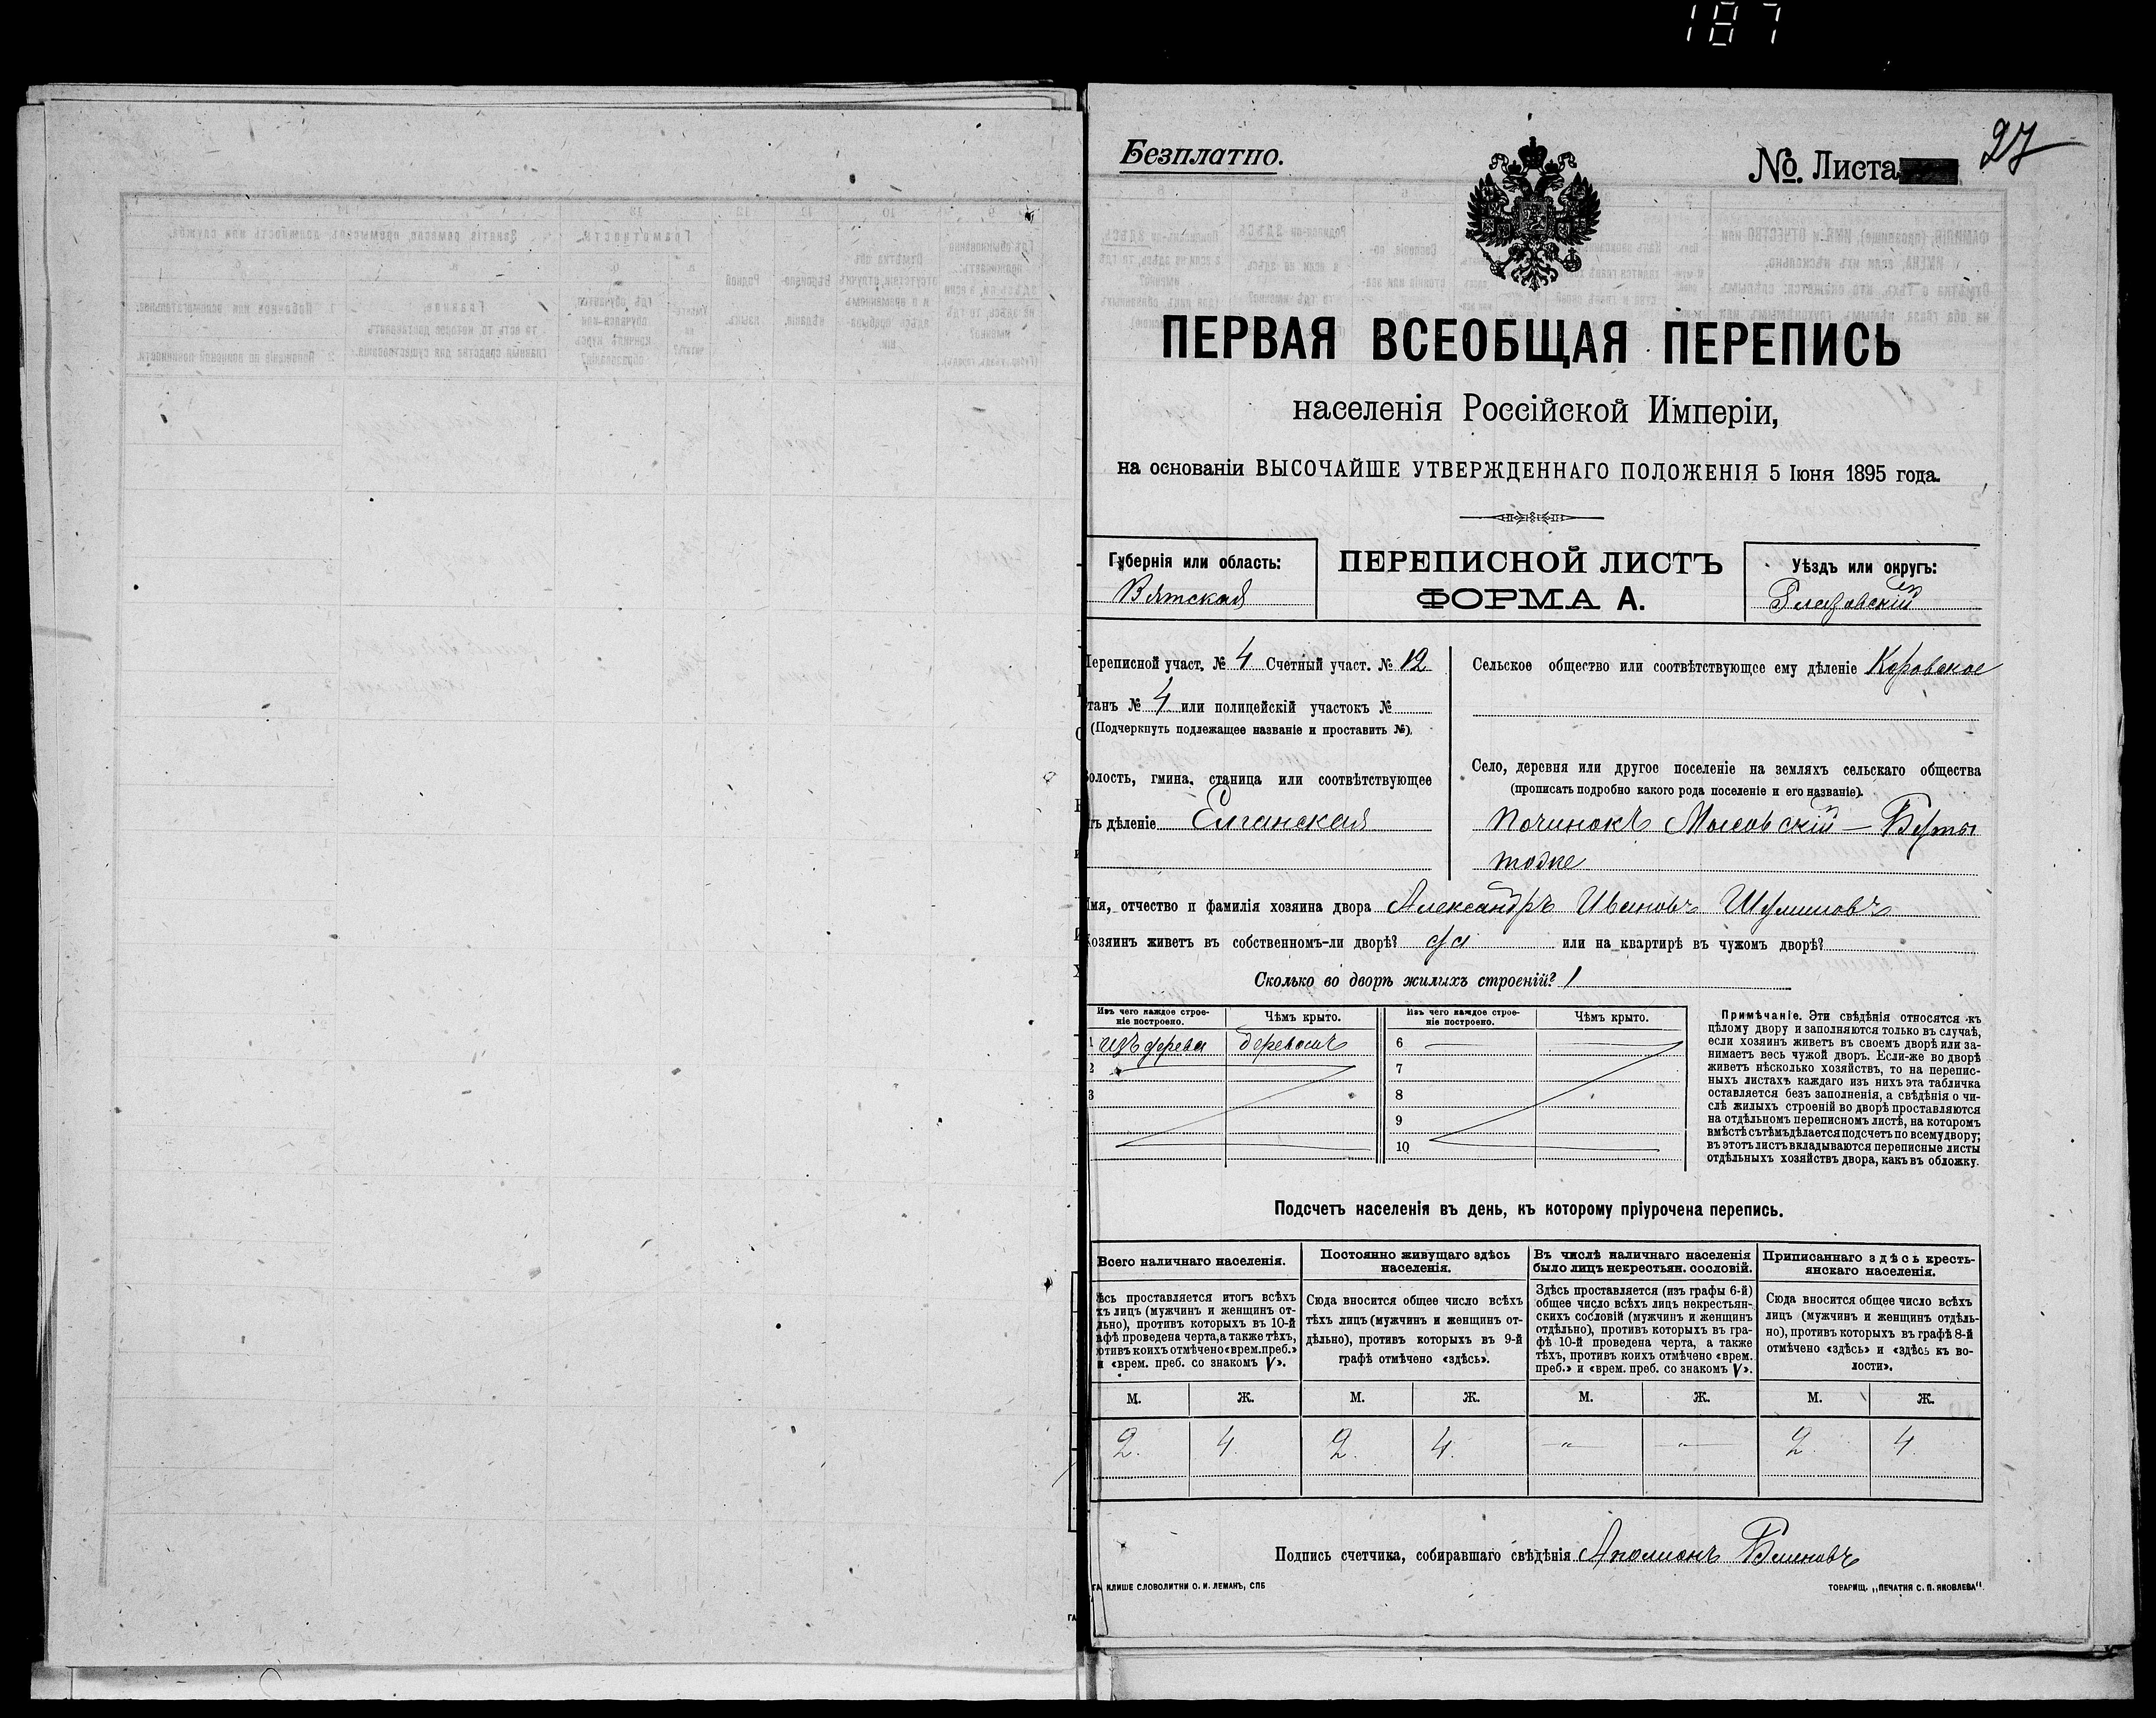 187
Безплатно.
№. Листа
27
ПЕРВАЯ ВСЕОБЩАЯ ПЕРЕПИСЬ
населенія Россійской Имперіи,
на основаніи ВЫСОЧАЙШЕ УТВЕРЖДЕННАГО ПОЛОЖЕНІЯ 5 Іюня 1895 года.
Губернія или область:
Вятская
ПЕРЕПИСНОЙ ЛИСТЪ
ФОРМА А.
Уѣздъ или округъ:
Глазовскій
Переписной участ. № 4 Счетный участ. № 12
танъ № 4 или полицейскій участокъ №
(Подчеркнуть подлежащее названіе и проставить №).
Волость, гмина, станица или соотвѣтствующее
ъ дѣленіе Елганская
Сельское общество или соотвѣтствующее ему дѣленіе Коровское
Село, деревня или другое поселеніе на земляхъ сельскаго общества
(прописать подробно какого рода поселеніе и его названіе).
Починокъ Мысовскій —
Имя, отчество и фамилія хозяина двора Александръ Ивановъ
Хозяинъ живетъ въ собственномъ-ли дворѣ? да или на квартирѣ въ чужомъ дворѣ?
Сколько во дворѣ жилыхъ строеній? 1
Изъ чего каждое строе-
ніе построено.
Чѣмъ крыто.
Изъ чего каждое строе-
ніе построено.
Чѣмъ крыто.
1 изъ дерева деревомъ 6
2 7
3 8
9
10
Примѣчаніе. Эти свѣдѣнія относятся къ
цѣлому двору и заполняются только въ случаѣ,
если хозяинъ живетъ въ своемъ дворѣ или за-
нимаетъ весь чужой дворъ. Если-же во дворѣ
живетъ нѣсколько хозяйствъ, то на перепис-
ныхъ листахъ каждаго изъ нихъ эта табличка
оставляется безъ заполненія, а свѣдѣнія о чи-
слѣ жилыхъ строеній во дворѣ проставляются
на отдѣльномъ переписномъ листѣ, на которомъ
вмѣстѣ съ тѣмъ дѣлается подсчетъ по всему двору;
въ этотъ листъ вкладываются переписные листы
отдѣльныхъ хозяйствъ двора, какъ въ обложку.
Подсчетъ населенія въ день, къ которому пріурочена перепись.
Всего наличнаго населенія.
Постоянно живущаго здѣсь
населенія.
Въ числѣ наличнаго населенія
было лицъ некрестьян. сословій.
Приписаннаго здѣсь кресть-
янскаго населенія.
ѣсь проставляется итогъ всѣхъ
хъ лицъ (мужчинъ и женщинъ от-
льно), противъ которыхъ въ 10-й
афѣ проведена черта, а также тѣхъ,
отивъ коихъ отмѣчено «врем. преб.»
и «врем. преб. со знакомъ V».
Сюда вносится общее число всѣхъ
тѣхъ лицъ (мужчинъ и женщинъ от-
дѣльно), противъ которыхъ въ 9-й
графѣ отмѣчено «здѣсь».
Здѣсь проставляется (изъ графы 6-й)
общее число всѣхъ лицъ некрестьян-
скихъ сословій (мужчинъ и женщинъ
отдѣльно), противъ которыхъ въ гра-
фѣ 10-й проведена черта, а также
тѣхъ, противъ коихъ отмѣчено «врем.
преб.» и «врем. преб. со знакомъ V».
Сюда вносится общее число всѣхъ
лицъ (мужчинъ и женщинъ отдѣль-
но), противъ которыхъ въ графѣ 8-й
отмѣчено «здѣсь» и «здѣсь къ во-
лости».
М. Ж. М. Ж. М. Ж. М. Ж.
2. 4. 2. 4. — " — — " — 2. 4.
Подпись счетчика, собиравшаго свѣдѣнія
КЛИШЕ СЛОВОЛИТНИ О. И. ЛЕМАНЪ, СПБ
ТОВАРИЩ. „ПЕЧАТНЯ С. П. ЯКОВЛЕВА“